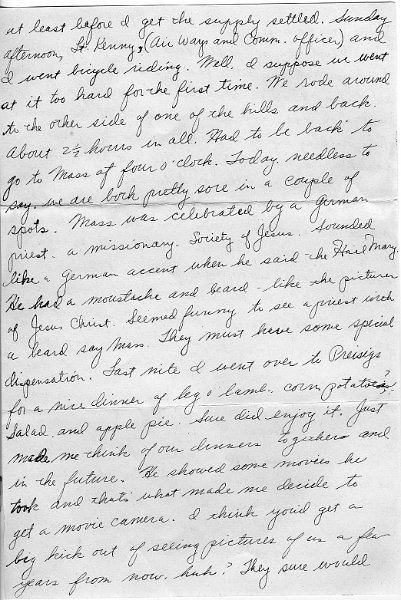 at least before I get the supply settled. Sunday
afternoon, Lt. Kenny, (Air Ways and Comm. officer,) and
I went bicycle riding. Well, I suppose we went
at it too hard for the first time. We rode around
to the other side of one of the hills and back.
About 2½ hours in all. Had to be back to
go to Mass at four o'clock. Today, needless to
say, we are both pretty sore in a couple of
spots. Mass was celebrated by a German
priest. a missionary. Society of Jesus. Sounded
like a German accent when he said the Hail Mary.
He had a moustache and beard - like the pictures
of Jesus Christ. Seemed funny to see a priest with
a beard say Mass. They must have some special
dispensation. Last nite I went over to Preisigs
for a nice dinner of leg o' lamb, corn, potatoes?,
salad, and apple pie. Sure did enjoy it. Just
made me think of our dinners together and
in the future. He showed some movies he
took and that's what made me decide to
get a movie camera. I think you'd get a
big kick out of seeing pictures of us a few
years from now. huh? They sure would